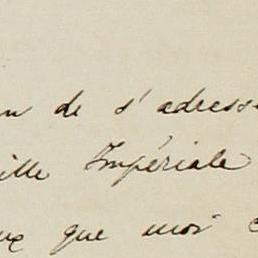 de s'adresse
ille Impériale
que moi